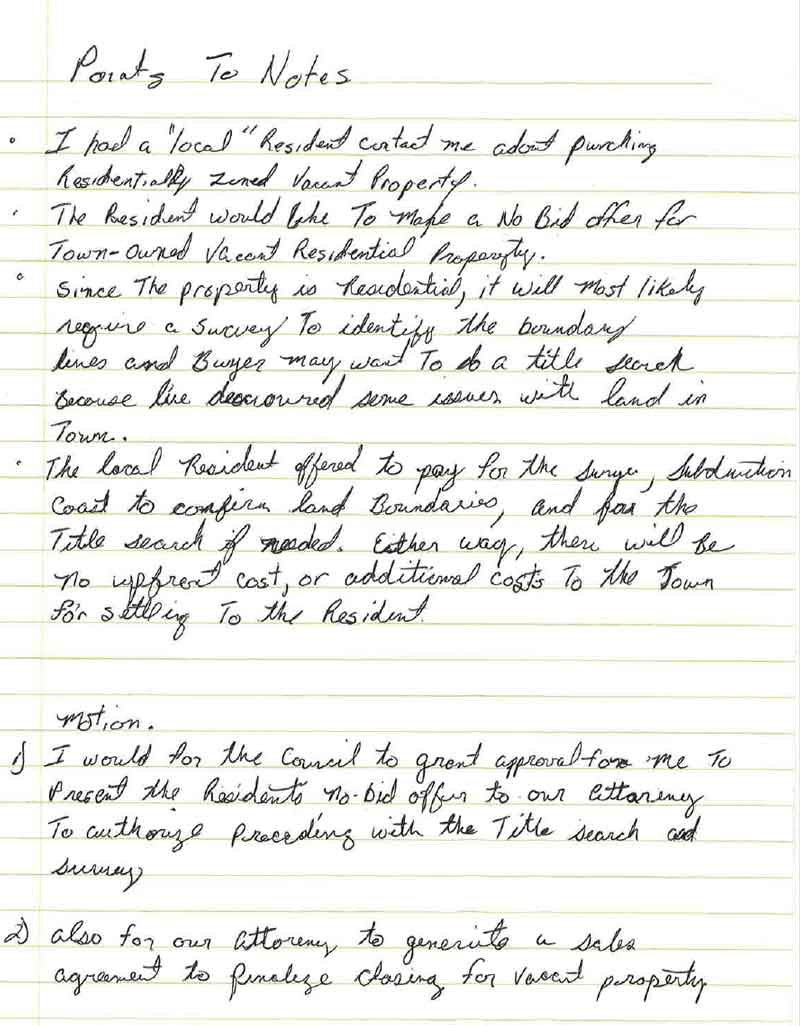 Points To Notes
• I had a "local" Resident contact me adout purching
Residentially zoned Vacant Property.
• The Resident would like To make a No Bid offer for
Town-Owned Vacant Residential Properety.
• Since The property is Residential, it will most likely
require a Survey To identify the boundary
lines and Buyer may want To do a title search
Because I've some issues with land in
Town.
• The local Resident offered to pay for the Surye, Subdivition
Coast to confirm land Boundaries, and for the
Title search if needed. Either way, there will be
no upfront cost, or additional costs To the Town
for settling To the Resident.
Motion.
1) I would for the Council to grant approval for me To
Present the Residents no-bid offer to our Attoreney
To authorize Proceeding with the Title search and
survey
2) also for our Attoreny to generate a sales
agreement to finalize closing for vacant property